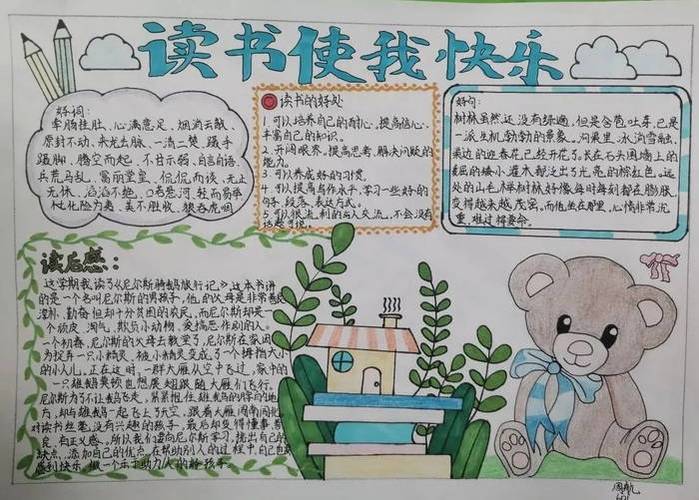 读书使我快乐
好词:
牵肠挂肚、心满意足、烟消云散、
原封不动、来龙去脉、一清二楚、蹑手
蹑脚、腾空而起、不甘示弱、自言自语、
兵荒马乱、富丽堂皇、侃侃而谈、无止
无休、滔滔不绝、口若悬河、轻而易举
化险为夷、美不胜收、狼吞虎咽
读书的好处
1.可以培养自己的耐心。提高信心、
丰富自己的知识。
2.开阔眼界、提高思考、解决问题的
能力。
3.可以养成好的习惯。
4.可以提高写作水平,学习一些好的
句子、段落、表达方式。
5.可以很流利的与人交流,不会没有
好句:
树林虽然还没有绿遍,但是含苞吐芽,已是
一派生机勃勃的景象。沟渠里,水淌雪融,
渠边的迎春花已经开花了。长在石头围墙上的
低矮的矮小灌木都泛出了光亮的棕红色。远
处的山毛榉树林好像每时每刻都在膨胀,
变得越来越茂密。而他坐在那里,心情非常沉
重,难过得要命。
读后感:
这学期我读了《尼尔斯骑鹅旅行记》这本书讲
的是一个名叫尼尔斯的男孩子,他的父母是非常善良
淳朴、勤奋但却十分贫困的农民,而尼尔斯却是一
个顽皮、淘气、欺负小动物、爱搞恶作剧的人。
一个初春,尼尔斯的父母去教堂了,尼尔斯在家因
为捉弄一只小精灵,被小精灵变成了一个拇指大小
的小人儿。正在这时,一群大雁从空中飞过,家中的
一只雄鹅莫顿也想展翅跟随大雁们飞行。
尼尔斯为了不让鹅飞走,紧紧抱住雄鹅的
方,却与雄鹅一起飞上了天空,跟着大雁周游
对读书丝毫没有兴趣的孩子,最后却变得懂事善
良、有正义感。所以我们要向尼尔斯学习,找出自己的
缺点,添加自己的优点,在帮助别人的过程中自己也
感到快乐,做一个乐于助人的好孩子。
周航
601